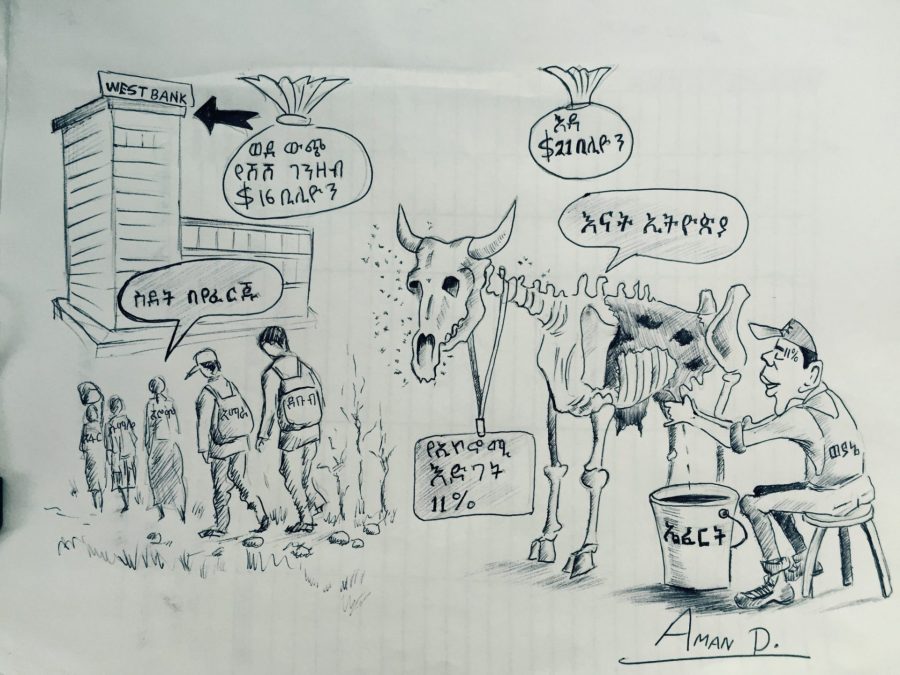 WEST BANK
ወደ ውጭ
የሸሸ ገንዘብ
$16 ቢሊዮን
እዳ
$21 ቢሊዮን
እናት ኢትዮጵያ
ስደት በየፈርጁ
11%
አማራ
ደቡብ
የኢኮኖሚ
እድገት
11%
ወያኔ
ኤፈርት
AMAN D.